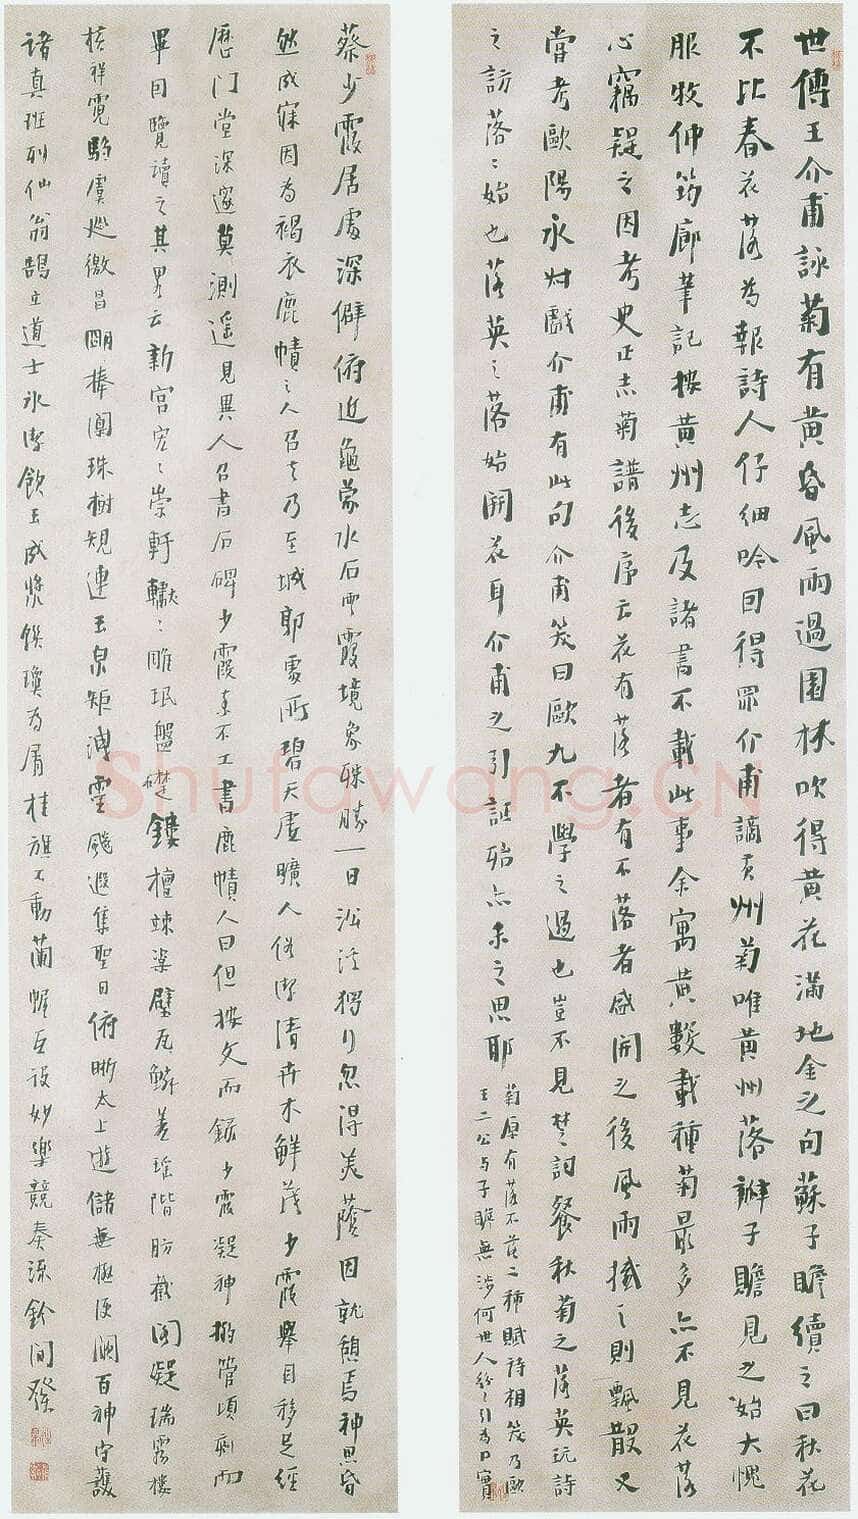 世傳王介甫詠菊有黃昏風雨過園林吹得黃花滿地金之句蘇子瞻續之曰秋花
不比春花落為報詩人仔細吟因得罪介甫謫黃州菊唯黃州落瓣子瞻見之始大愧
服牧仲筠廊筆記按黃州志及諸書不載此事余寓黃數載種菊最多亦不見花落
心竊疑之因考史正志菊譜後序云花有落者有不落者盛開之後風雨撼之則飄散又
當考歐陽永叔戲介甫有此句介甫笑曰歐九不學之過也豈不見楚詞餐秋菊之落英玩詩
之訪落落始也落英之落始開花耳介甫之引証殆亦未之思耶
菊原有落不落二種賦詩相笑乃歐
王二公与子瞻無涉何世人紛紛引為口實
蔡少霞居處深僻俯近龜蒙水石雲霞境象殊勝一日沿溪獨行忽得美蔭因就憩焉神思昏
然成寐因為褐衣鹿幘之人召去乃至城郭處所碧天虛曠人俗潔清卉木鮮茂少霞舉目移足經
歷門堂深邃莫測遥見異人召書石碑少霞素不工書鹿幘人曰但按文而錄少霞凝神搦管頃刻而
畢因覽讀之其略云新宮宏宏崇軒轍轍雕珉盤礎鏤檀竦楶壁瓦鱗差瑤階肪截閣凝瑞霧樓
橫祥霓騶虞巡徼昌明捧闑珠樹規連玉泉矩洩靈飈遐集聖日俯晰太上遊儲無極便闕百神守護
諸真班列仙翁鵠立道士冰潔飲玉成漿饌瓊為屑桂旗不動蘭幄互設妙樂競奏流鈴間發
Shufawang.CN